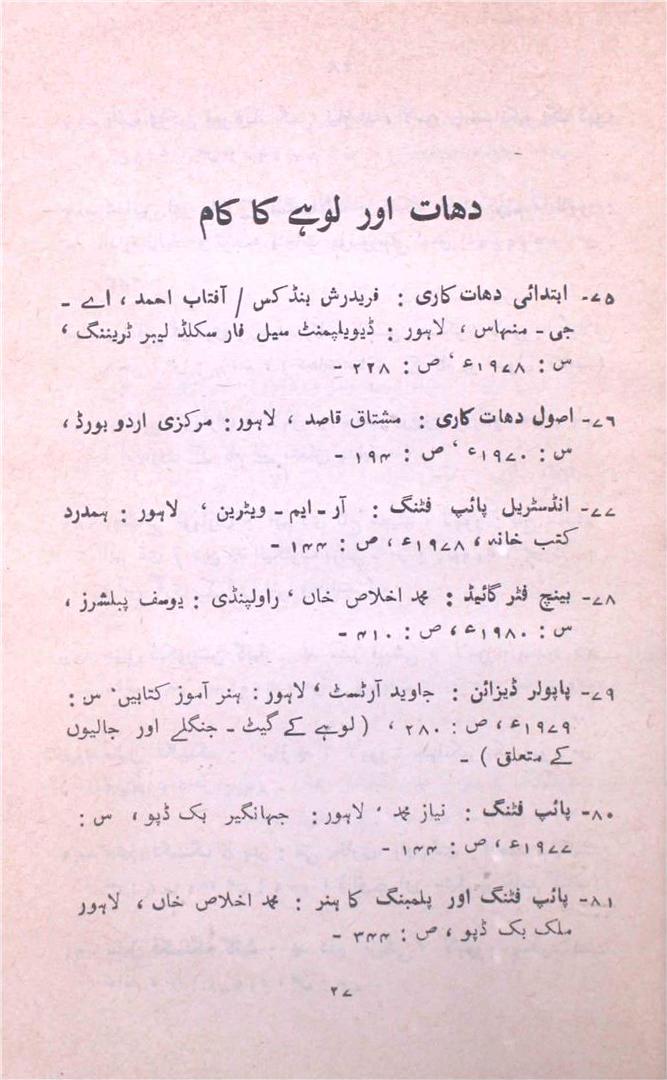 دھات اور لوہے کا کام
۷۵- ابتدائی دھات کاری : فریدرش ہنڈکس / آفتاب احمد ، اے -
جی - منہاس ، لاہور : ڈیویلپمنٹ سیل فار سکلڈ لیبر ٹریننگ ،
س : ۱۹۷۸ء ، ص : ۲۲۸ -
۷۶- اصول دھات کاری : مشتاق قاصد ، لاہور : مرکزی اردو بورڈ ،
س : ۱۹۷۰ء ، ص : ۱۹۴ -
۷۷- انڈسٹریل پائپ فٹنگ : آر - ایم - ویٹرین ، لاہور : ہمدرد
کتب خانہ ، ۱۹۷۸ء ، ص : ۱۴۴ -
۷۸- بینچ فٹر گائیڈ : محمد اخلاص خاں ، راولپنڈی : یوسف پبلشرز ،
س : ۱۹۸۰ء ، ص : ۴۱۰ -
۷۹- پاپولر ڈیزائن : جاوید آرٹسٹ ، لاہور : ہنر آموز کتابیں ، س :
۱۹۷۹ء ، ص : ۲۸۰ ، ( لوہے کے گیٹ - جنگلے اور جالیوں
کے متعلق ) -
۸۰- پائپ فٹنگ : نیاز محمد ، لاہور : جہانگیر بک ڈپو ، س :
۱۹۷۷ء ، ص : ۱۴۴ -
۸۱- پائپ فٹنگ اور پلمبنگ کا ہنر : محمد اخلاص خاں ، لاہور
ملک بک ڈپو ، ص : ۳۴۴ -
۲۷